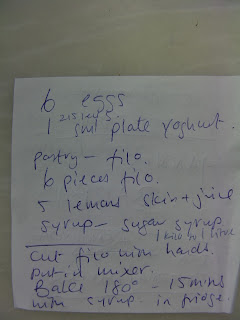 6 eggs
1 sml plate yoghurt.
pastry - filo.
6 pieces filo.
5 lemons skin + juice
syrup - sugar syrup
1 kilo to 1 litre
cut filo with hands.
put in mixer.
Bake 180° - 15 mins
with syrup in fridge.